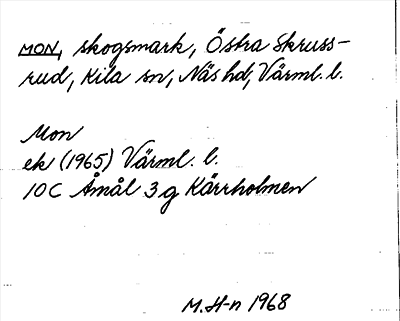 MON, skogsmark, Östra Skruss-
rud, Kila sn, Näs hd, Värml. l.
Mon
ek (1965) Värml. l.
10C Åmål 3g Kärrholmen
M. H-n 1968